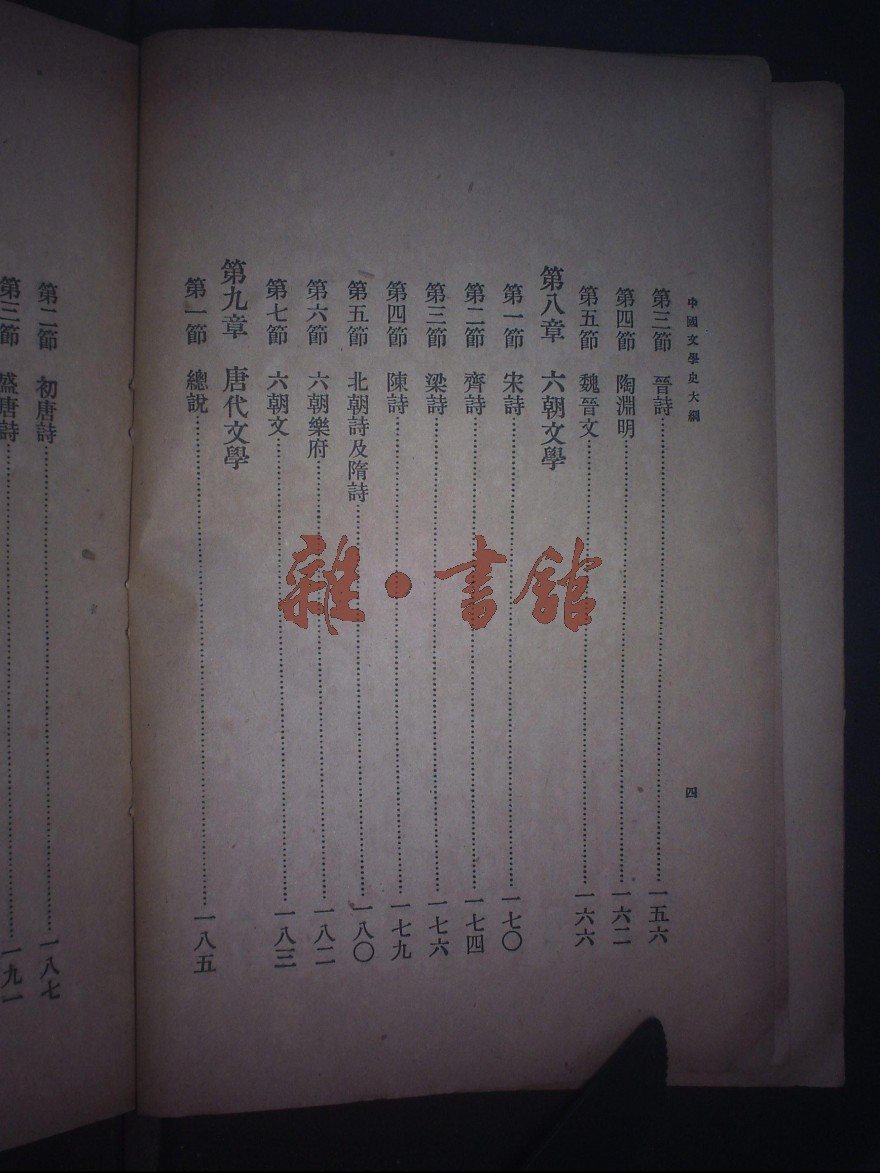 中國文學史大綱
四
第三節 晉詩……一五六
第四節 陶淵明……一六二
第五節 魏晉文……一六六
第八章 六朝文學
第一節 宋詩……一七〇
第二節 齊詩……一七四
第三節 梁詩……一七六
第四節 陳詩……一七九
第五節 北朝詩及隋詩……一八〇
第六節 六朝樂府……一八二
第七節 六朝文……一八三
第九章 唐代文學
第一節 總說……一八五
第二節 初唐詩……一八七
第三節 盛唐詩……一九一
雜·書館